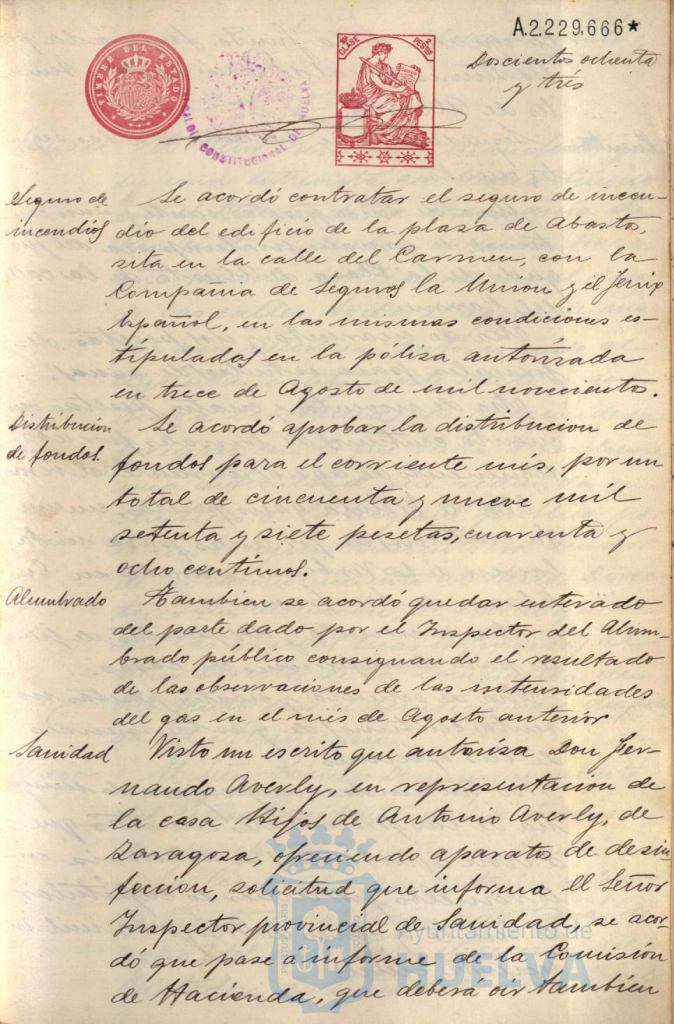 A.2.229,666*
TIMBRE DEL ESTADO
1ª CLASE 2 PESETAS
ALCALDIA CONSTITUCIONAL DE HUELVA
Doscientos ochenta
y trés
Seguro de
incendios
Se acordó contratar el seguro de incen-
dio del edificio de la plaza de Abastos,
sita en la calle del Carmen, con la
Compañia de Seguros la Union y el Fenix
Español, en las mismas condiciones es-
tipuladas en la póliza autorizada
en trece de Agosto de mil noveciento.
Distribucion
de fondos.
Se acordó aprobar la distribucion de
fondos para el corriente més, por un
total de cincuenta y nueve mil
setenta y siete pesetas, cuarenta y
ocho centimos.
Alumbrado
Tambien se acordó quedar enterado
del parte dado por el Inspector del Alum-
brado público consignando el resultado
de las observaciones de las intensidades
del gas en el més de Agosto anterior
Sanidad
Visto un escrito que autoriza Don Fer-
nando Averly, en representacion de
la casa Hijos de Antonio Averly, de
Zaragoza, ofreciendo aparatos de desin-
feccion, solicitud que informa el Señor
Inspector provincial de Sanidad, se acor-
dó que pase á informe de la Comisión
de Hacienda, que deberá oir tambien
Ayuntamiento de
HUELVA